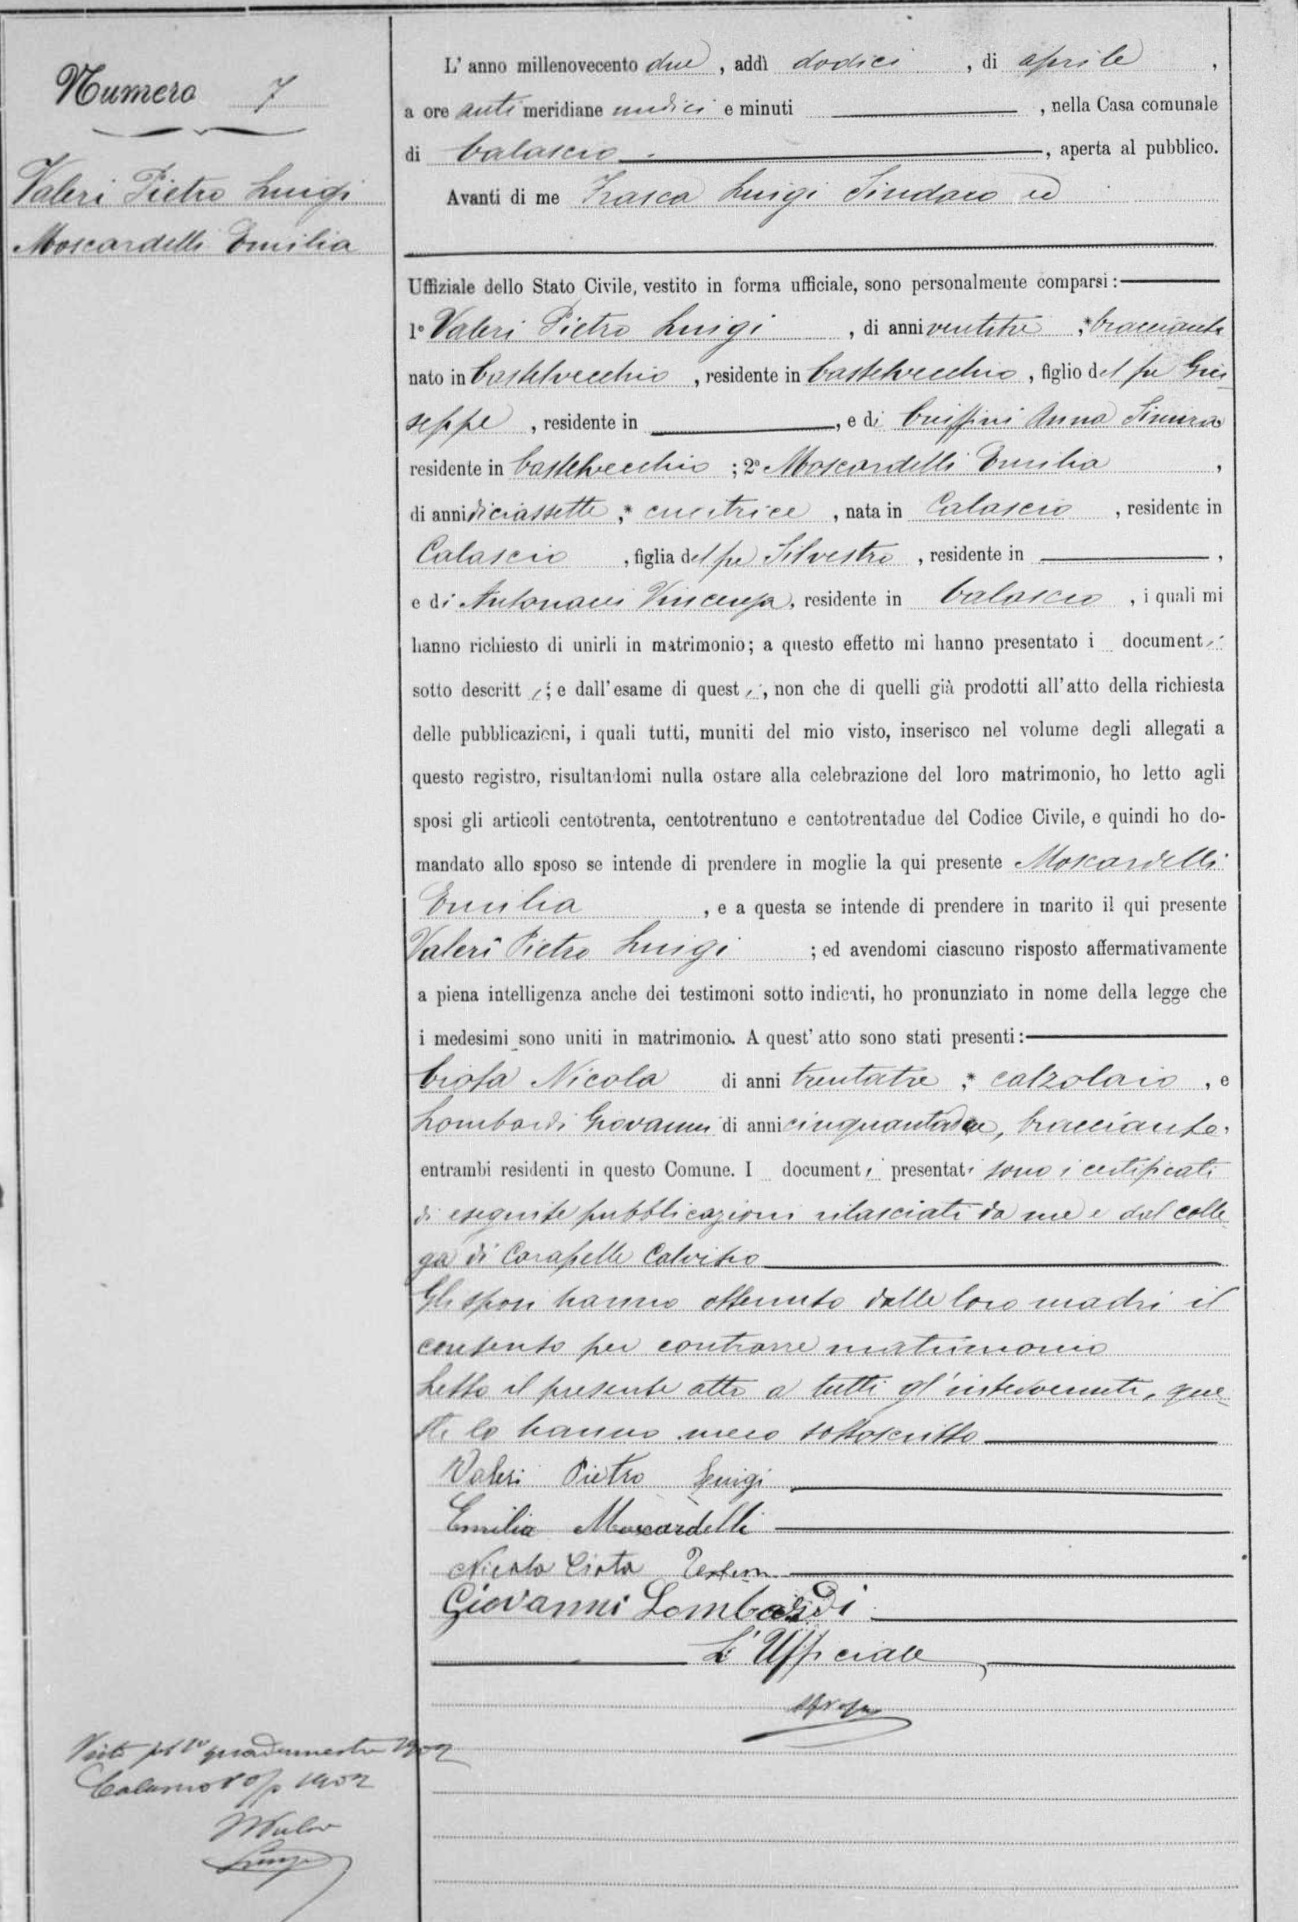 Numero 7
Valeri Pietro Luigi
Moscardelli Emilia
L'anno millenovecento due, addì dodici, di aprile,
a ore anti meridiane undici e minuti , nella Casa comunale
di Calascio, aperta al pubblico.
Avanti di me Frasca Luigi Sindaco ed
Uffiziale dello Stato Civile, vestito in forma ufficiale, sono personalmente comparsi:
1º Valeri Pietro Luigi, di anni ventitre, * bracciante
nato in Castelvecchio, residente in Castelvecchio, figlio del fu Giu-
seppe, residente in , e di Anna
residente in Castelvecchio; 2º Moscardelli Emilia,
di anni diciassette, * cucitrice, nata in Calascio, residente in
Calascio, figlia del fu Silvestro, residente in ,
e di Antonacci Vincenza, residente in Calascio, i quali mi
hanno richiesto di unirli in matrimonio; a questo effetto mi hanno presentato i documenti
sotto descritti; e dall'esame di questi, non che di quelli già prodotti all'atto della richiesta
delle pubblicazioni, i quali tutti, muniti del mio visto, inserisco nel volume degli allegati a
questo registro, risultandomi nulla ostare alla celebrazione del loro matrimonio, ho letto agli
sposi gli articoli centotrenta, centotrentuno e centotrentadue del Codice Civile, e quindi ho do-
mandato allo sposo se intende di prendere in moglie la qui presente Moscardelli
Emilia, e a questa se intende di prendere in marito il qui presente
Valeri Pietro Luigi; ed avendomi ciascuno risposto affermativamente
a piena intelligenza anche dei testimoni sotto indicati, ho pronunziato in nome della legge che
i medesimi sono uniti in matrimonio. A quest'atto sono stati presenti:
Ciota Nicola di anni trentatre, * calzolaio, e
Lombardi Giovanni di anni cinquantadue, bracciante,
entrambi residenti in questo Comune. I documenti presentati sono i certificati
di eseguite pubblicazioni rilasciati da me e dal colle-
ga di Carapelle Calvisio
Gli sposi hanno ottenuto dalle loro madri il
consenso per contrarre matrimonio
Letto il presente atto a tutti gl'intervenuti, que-
sti lo hanno meco sottoscritto
Valeri Pietro Luigi
Emilia Moscardelli
Nicola Ciota
Giovanni Lombardi
L'Ufficiale
quadrimestre 1902
1902